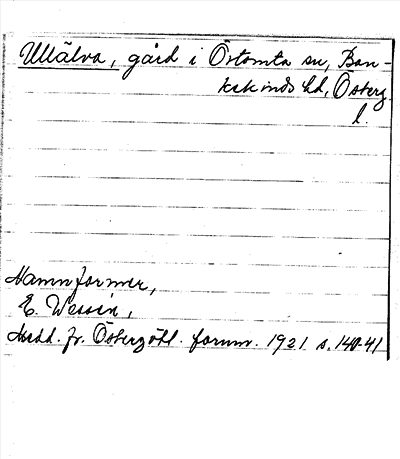 Ullälva, gård i Örtomta sn, Ban-
kekinds hd, Österg.
l.
Namnformer,
E. Wessén,
Medd. fr. Östergötl. fornm. 1921 s. 140-41